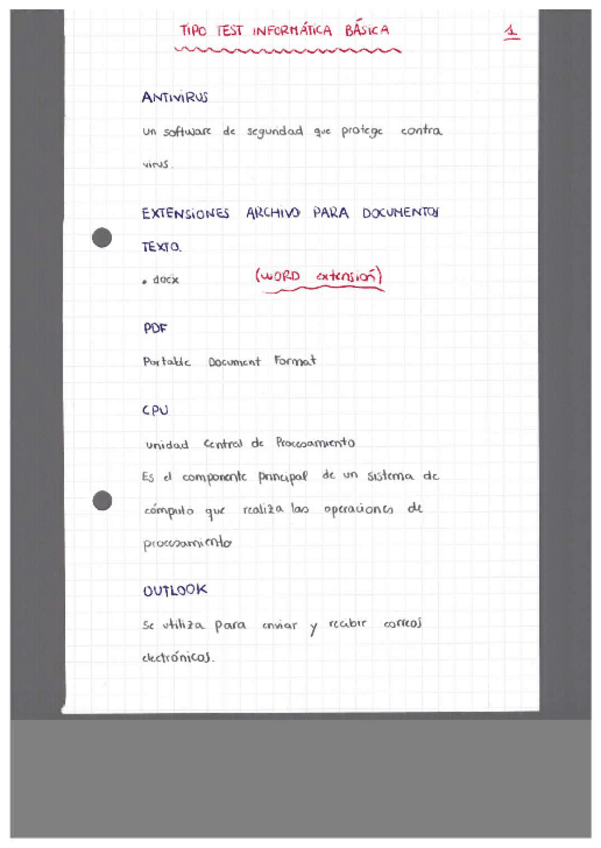 TIPO TEST INFORMÁTICA BÁSICA 1
ANTIVIRUS
un software de seguridad que protege contra
virus.
EXTENSIONES ARCHIVO PARA DOCUMENTOS
TEXTO.
. docx (WORD extensión)
PDF
Portable Document Format
CPU
Unidad Central de Procesamiento
Es el componente principal de un sistema de
cómputo que realiza las operaciones de
procesamiento
OUTLOOK
Se utiliza para enviar y recibir correos
electrónicos.